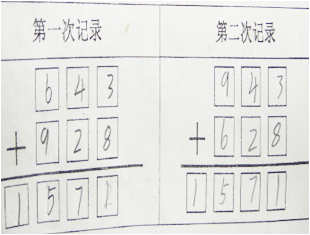 第一次记录 第二次记录
643 943
+928 +628
1571 1571